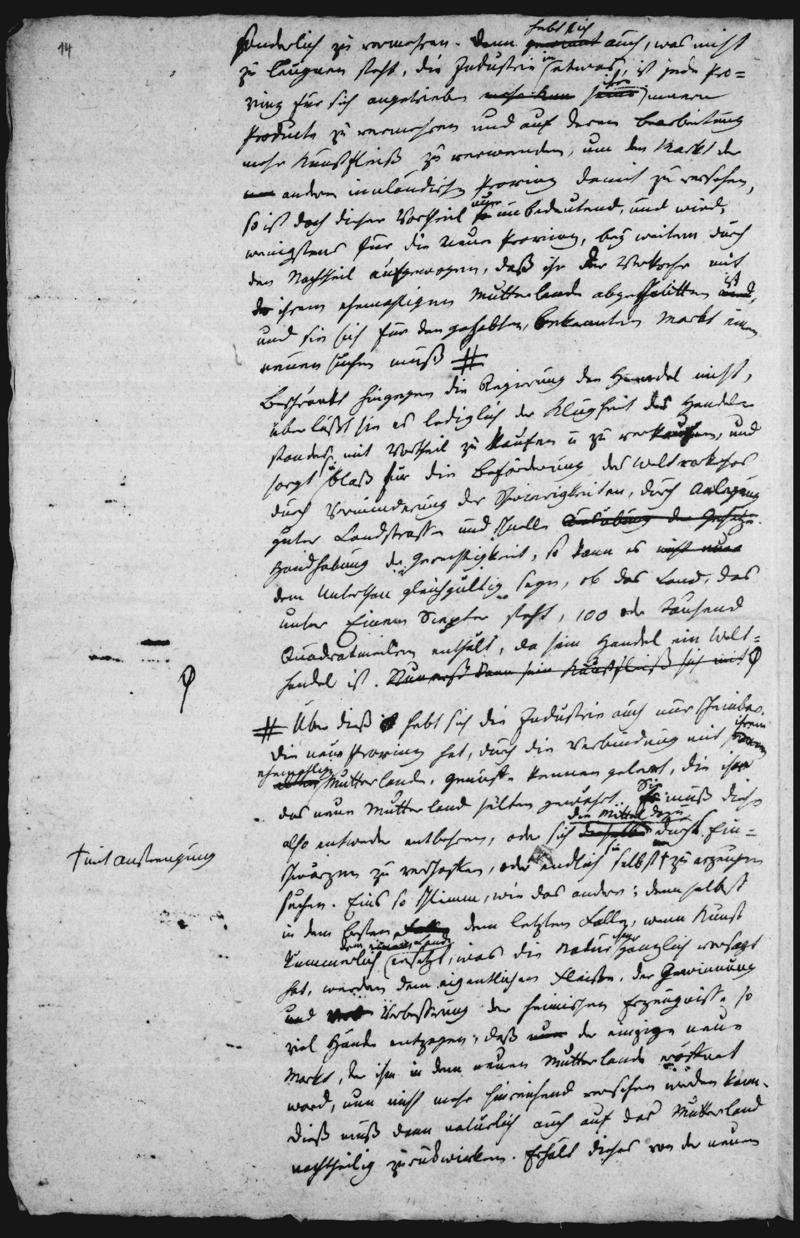 14
sonderlich zu vermehren. Denn hebt sich auch, was nicht
zu leugnen steht, die Industrie in etwas, ist jede Pro-
vinz für sich angetrieben ihre innern
Producte zu vermehren und auf deren Bearbeitung
mehr Kunstfleiß zu verwenden, um den Markt der
andern innländischen Provinz damit zu versehen,
so ist doch dieser Vortheil nur unbedeutend, und wird,
wenigstens für die neue Provinz, bey weitem durch
den Nachtheil aufgewogen, daß ihr der Verkehr mit
ihrem ehemaligen Mutterlande abgeschnitten ist,
und sie sich für den gehabten, bekannten Markt einen
neuen suchen muß #
Beschränkt hingegen die Regierung den Handel nicht,
überläßt sie es lediglich der Klugheit des Handels-
standes, mit Vortheil zu kaufen u zu verkaufen, und
sorgt blaß für die Beförderung des Weltverkehrs
durch Verminderung der Schwierigkeiten, durch Anlegung
guter Landstraßen und schnelle Ausübung der Gesetze
Handhabung der Gerechtigkeit, so kann es nicht nur
dem Unterthan gleichgültig seyn, ob das Land, das
unter Einem Scepter steht, 100 oder Tausend
Quadratmeilen enthält, da sein Handel ein Welt-
handel ist. kann sein Kunstfleiß sich mit
# Über dieß hebt sich die Industrie auch nur scheinbar.
Die neue Provinz hat, durch die Verbindung mit ihrem
ehemahligen Mutterlande, Genüsse kennen gelernt, die ihr
das neue Mutterland selten gewährt. Sie muß diese
also entweder entbehren, oder sich die Mittel dazu durch Ein-
schwärzen zu verschaffen, oder endlich sie selbst † zu erzeugen
† mit Anstrengung
suchen. Eins so schlimm, wie das andre; denn selbst
in dem besten, dem letzten Falle, wenn Kunst
kümmerlich dem neuen Lande ersetzt, was die Natur ihm gänzlich versagt
hat, werden dem eigentlichen Fleiße, der Gewinnung
und Verbesserung der heimischen Erzeugnisse so
viel Hände entzogen, daß der einzige neue
Markt, der ihm in dem neuen Mutterlande eröffnet
ward, nun nicht mehr hinreichend versehen werden kann.
Dieß muß dann natürlich auch auf das Mutterland
nachtheilig zurückwirken. Erhält dieses von der neuen